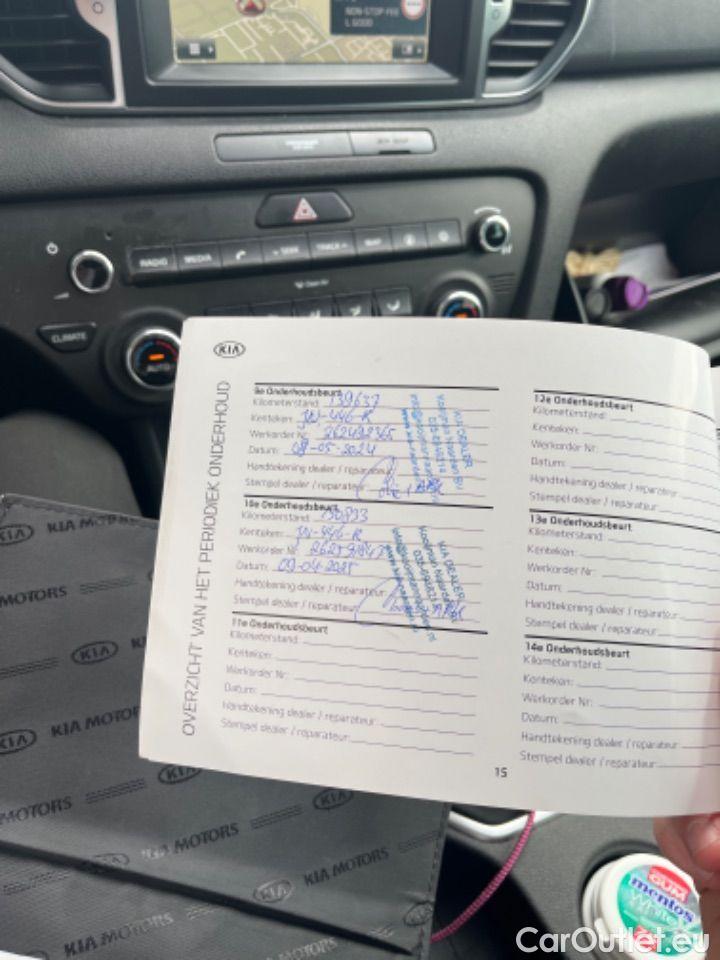 NON-STOP FEE
L GOOD
RADIO
MEDIA
SEEK
TRACK
CLIMATE
AUTO
KIA
OVERZICHT VAN HET PERIODIEK ONDERHOUD
9e Onderhoudsbeurt
Kilometerstand: 139637
Kenteken:
Werkorder Nr:
Datum: 08-05-2024
Handtekening dealer / reparateur:
Stempel dealer / reparateur:
KIA DEALER
10e Onderhoudsbeurt
Kilometerstand:
Kenteken:
Werkorder Nr:
Datum: 09-04-2025
Handtekening dealer / reparateur:
Stempel dealer / reparateur:
KIA DEALER
11e Onderhoudsbeurt
Kilometerstand:
Kenteken:
Werkorder Nr:
Datum:
Handtekening dealer / reparateur:
Stempel dealer / reparateur:
12e Onderhoudsbeurt
Kilometerstand:
Kenteken:
Werkorder Nr:
Datum:
Handtekening dealer / reparateur:
Stempel dealer / reparateur:
13e Onderhoudsbeurt
Kilometerstand:
Kenteken:
Werkorder Nr:
Datum:
Handtekening dealer / reparateur:
Stempel dealer / reparateur:
14e Onderhoudsbeurt
Kilometerstand:
Kenteken:
Werkorder Nr:
Datum:
Handtekening dealer / reparateur:
Stempel dealer / reparateur:
15
KIA MOTORS
MOTORS
KIA
KIA MOTOR
KIA
KIA
MOTORS
KIA MOTORS
KIA
KIA MOTORS
KIA MOTORS
GUM
mentos
White
CarOutlet.eu